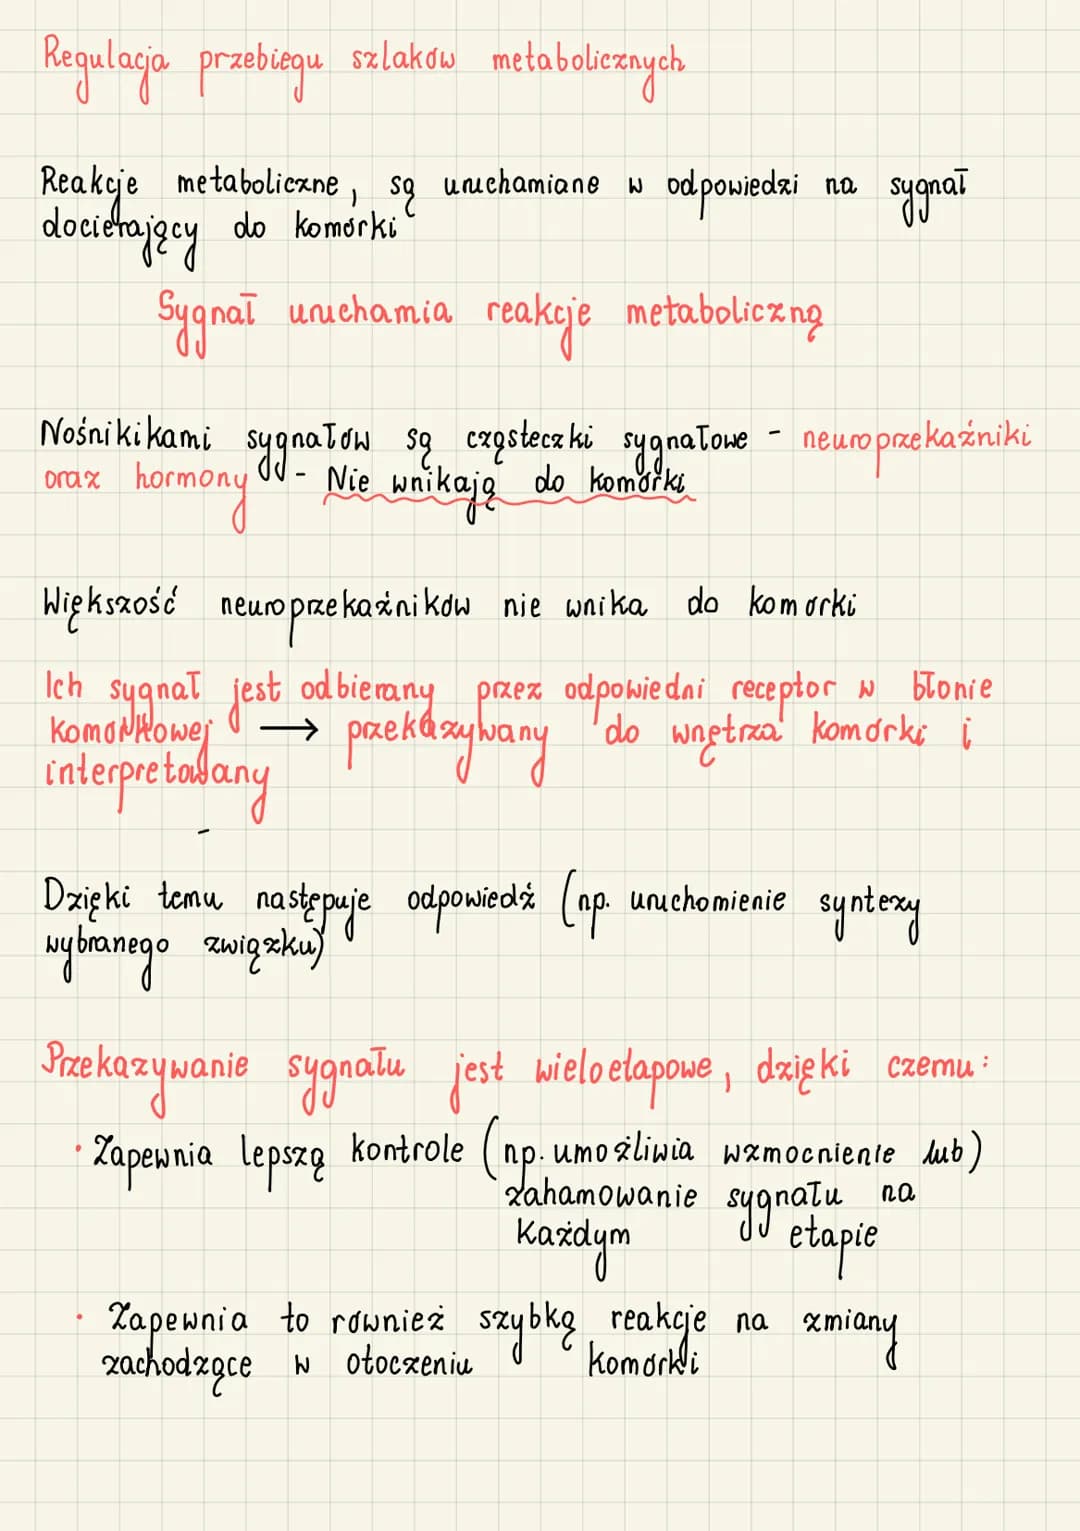 Regulacja przebiegu szlaków metabolicznych
Reakcje metaboliczne, są uruchamiane w odpowiedzi na sygnał
docierający do komórki
Sygnał uruchamia reakcje metaboliczną
Nośnikikami sygnałów są cząsteczki sygnałowe - neuroprzekaźniki
oraz hormony - Nie wnikają do komórki
Większość neuroprzekaźników nie wnika do komórki
Ich sygnał jest odbierany przez odpowiedni receptor w błonie
komórkowej → przekazywany do wnętrza komórki i
interpretowany
-
Dzięki temu następuje odpowiedź (np. uruchomienie syntezy
wybranego związku)
Przekazywanie sygnału jest wieloetapowe, dzięki czemu:
• Zapewnia lepszą kontrole (np. umożliwia wzmocnienie lub)
zahamowanie sygnału na
każdym etapie
• Zapewnia to również szybką reakcje na zmiany
zachodzące w otoczeniu komórki